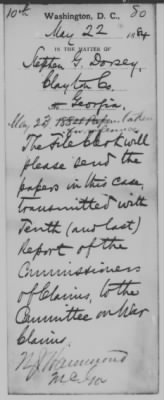 10th 80
Washington, D. C.,
May 22 1884
IN THE MATTER OF
Stephen G. Dorsey,
Clayton Co.
Georgia.
May 23
The File Clerk will
please send the
papers in this case,
transmitted with
Tenth (and last)
Report of the
Commissioners
of Claims, to the
Committee on War
Claims.
N J Hammond
M C